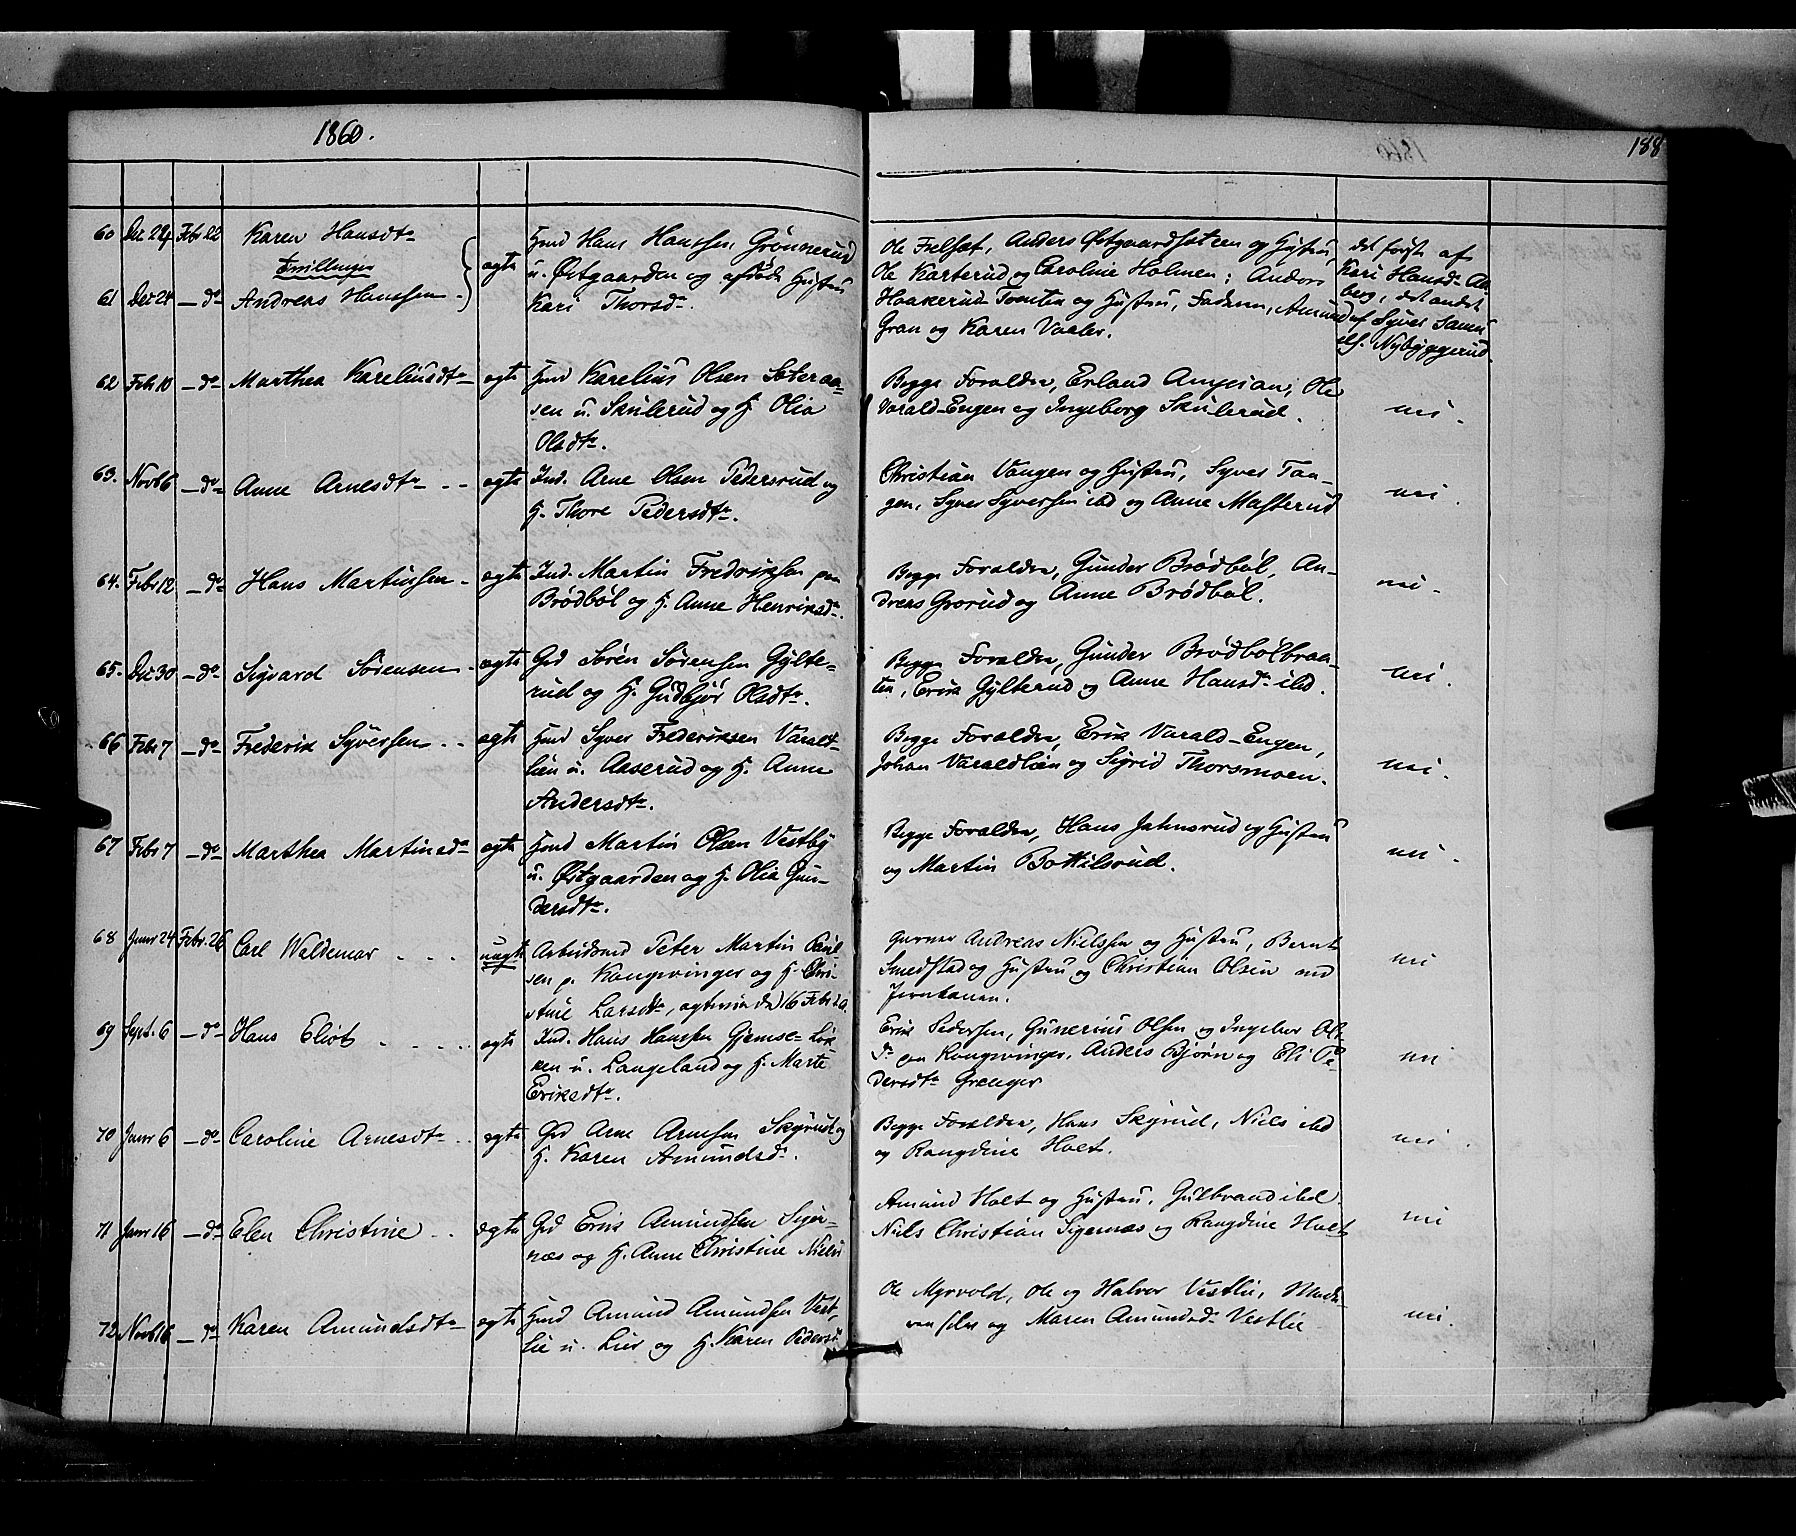 1860.
188
60 Dec 24 Febr 22 Karen Hansdtr
Tvillinger
61 Dec 24 — do Andreas Hanssen
ægte
Huusd Hans Hanssen Grønnerud
u. Østgaarden og afdøde Hustru
Kari Thorsdr.
Ole Frelset, Anders Østgaardsætren og Hustru,
Ole Karterud og Caroline Holmen; Anders
Haakerud-Tomten og Hustru, Faderen, Amund
Gran og Karen Vaaler.
det første af
Kari Hansdr Aa-
berg, det andet
af Syver Samu
els. Nybyggerud.
62 Febr 10 — do Marthea Kareliusdtr
ægte
Huusd Karelius Olsen Sæteraa-
sen u. Skulerud og H. Olia
Olsdtr.
Begge Forældre, Erland Ampian, Ole
Varald-Engen og Ingeborg Skulerud.
nei.
63. Novb 6 — do Anne Arnesdtr - -
ægte
Ind. Arne Olsen Pedersrud og
H. Thore Pedersdtr.
Christian Vangen og Hustru, Syver Tan-
gen, Syver Syversen ibd og Anne Masterud
nei.
64. Febr 12 — do Hans Martinsen -
ægte
Ind. Martin Fredriksen paa
Brødbøl og H. Anne Henriksdr.
Begge Forældre, Gunder Brødbøl, An-
dreas Grorud og Anne Brødbøl.
nei.
65. Dec 30 — do Sigvard Sørensen -
ægte
Grd Søren Sørensen Gylte-
rud og H. Gudbjør Olsdtr.
Begge Forældre, Gunder Brødbølbraa-
ten, Erik Gylterud og Anne Hansdr ibd.
nei.
66 Febr 7 — do Frederik Syversen - -
ægte
Huusd Syver Frederiksen Varald-
lien u. Aaserud og H. Anne
Andersdtr.
Begge Forældre, Erik Varald-Engen,
Johan Varaldlien og Sigrid Thorsmoen.
nei.
67 Febr 7 — do Marthea Martinsdr
ægte
Huusd Martin Olsen Vestby
u. Østgaarden og H. Olia Gun-
dersdtr.
Begge Forældre, Hans Jahnsrud og Hustru
og Martin Bottilsrud.
nei.
68 Janr 24 Febr. 26 Carl Waldemar - - -
uægte
Arbeidsmd Peter Martin Paul-
sen p. Kongsvinger og H. Chri-
stine Larsdtr, ægteviede d 16 Febr d.A.
Garver Andreas Nielssen og Hustru, Bernt
Smedstad og Hustru og Christian Olsen ved
Jernbanen.
nei
69 Septr. 6 — do Hans Eliot - - - -
ægte
Ind. Hans Hansen Gjemse-Løk-
ken u. Langeland og H. Marte
Eriksdtr.
Erik Pedersen, Gunerius Olsen og Ingebor Ols
dr paa Kongsvinger, Anders Bjørn og Eli Pe-
dersdtr Grænger
nei
70 Janr 6 — do Caroline Arnesdtr - -
ægte
Grd Arne Arnesen Skyrud og
H. Karen Amundsdr.
Begge Forældre, Hans Skyrud, Niels ibd
og Rangdine Holt.
nei.
71 Janr 16 — do Elen Christine - -
ægte
Grd Erik Amundsen Siger-
næs og H. Anne Christine Nielsd
Amund Holt og Hustru, Gulbrand ibd
Niels Christian Sigernæs og Rangdine Holt
nei
72 Novb 16 — do Karen Amundsdtr
ægte
Huusd Amund Amundsen Vest-
lie u. Lier og H. Karen Pedersd
Ole Myrvold, Ole og Halvor Vestlie, Mode-
ren selv og Maren Amundsdr Vestlie
nei.